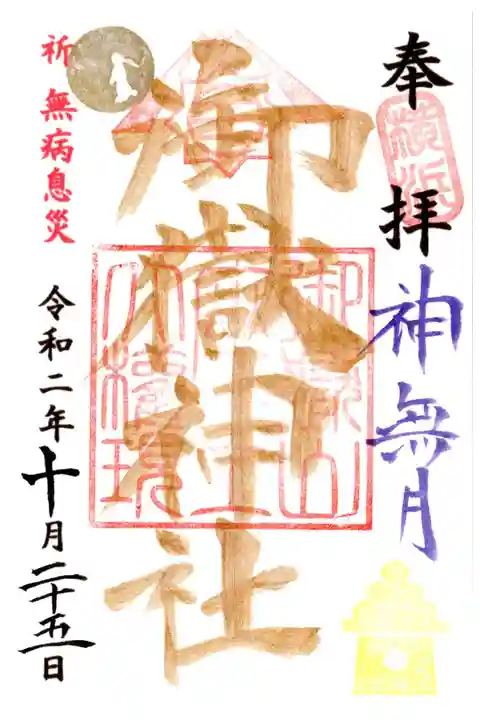 奉拝
横浜
神無月
御嶽神社
御嶽山
大権現
祈 無病息災
令和二年十月二十五日